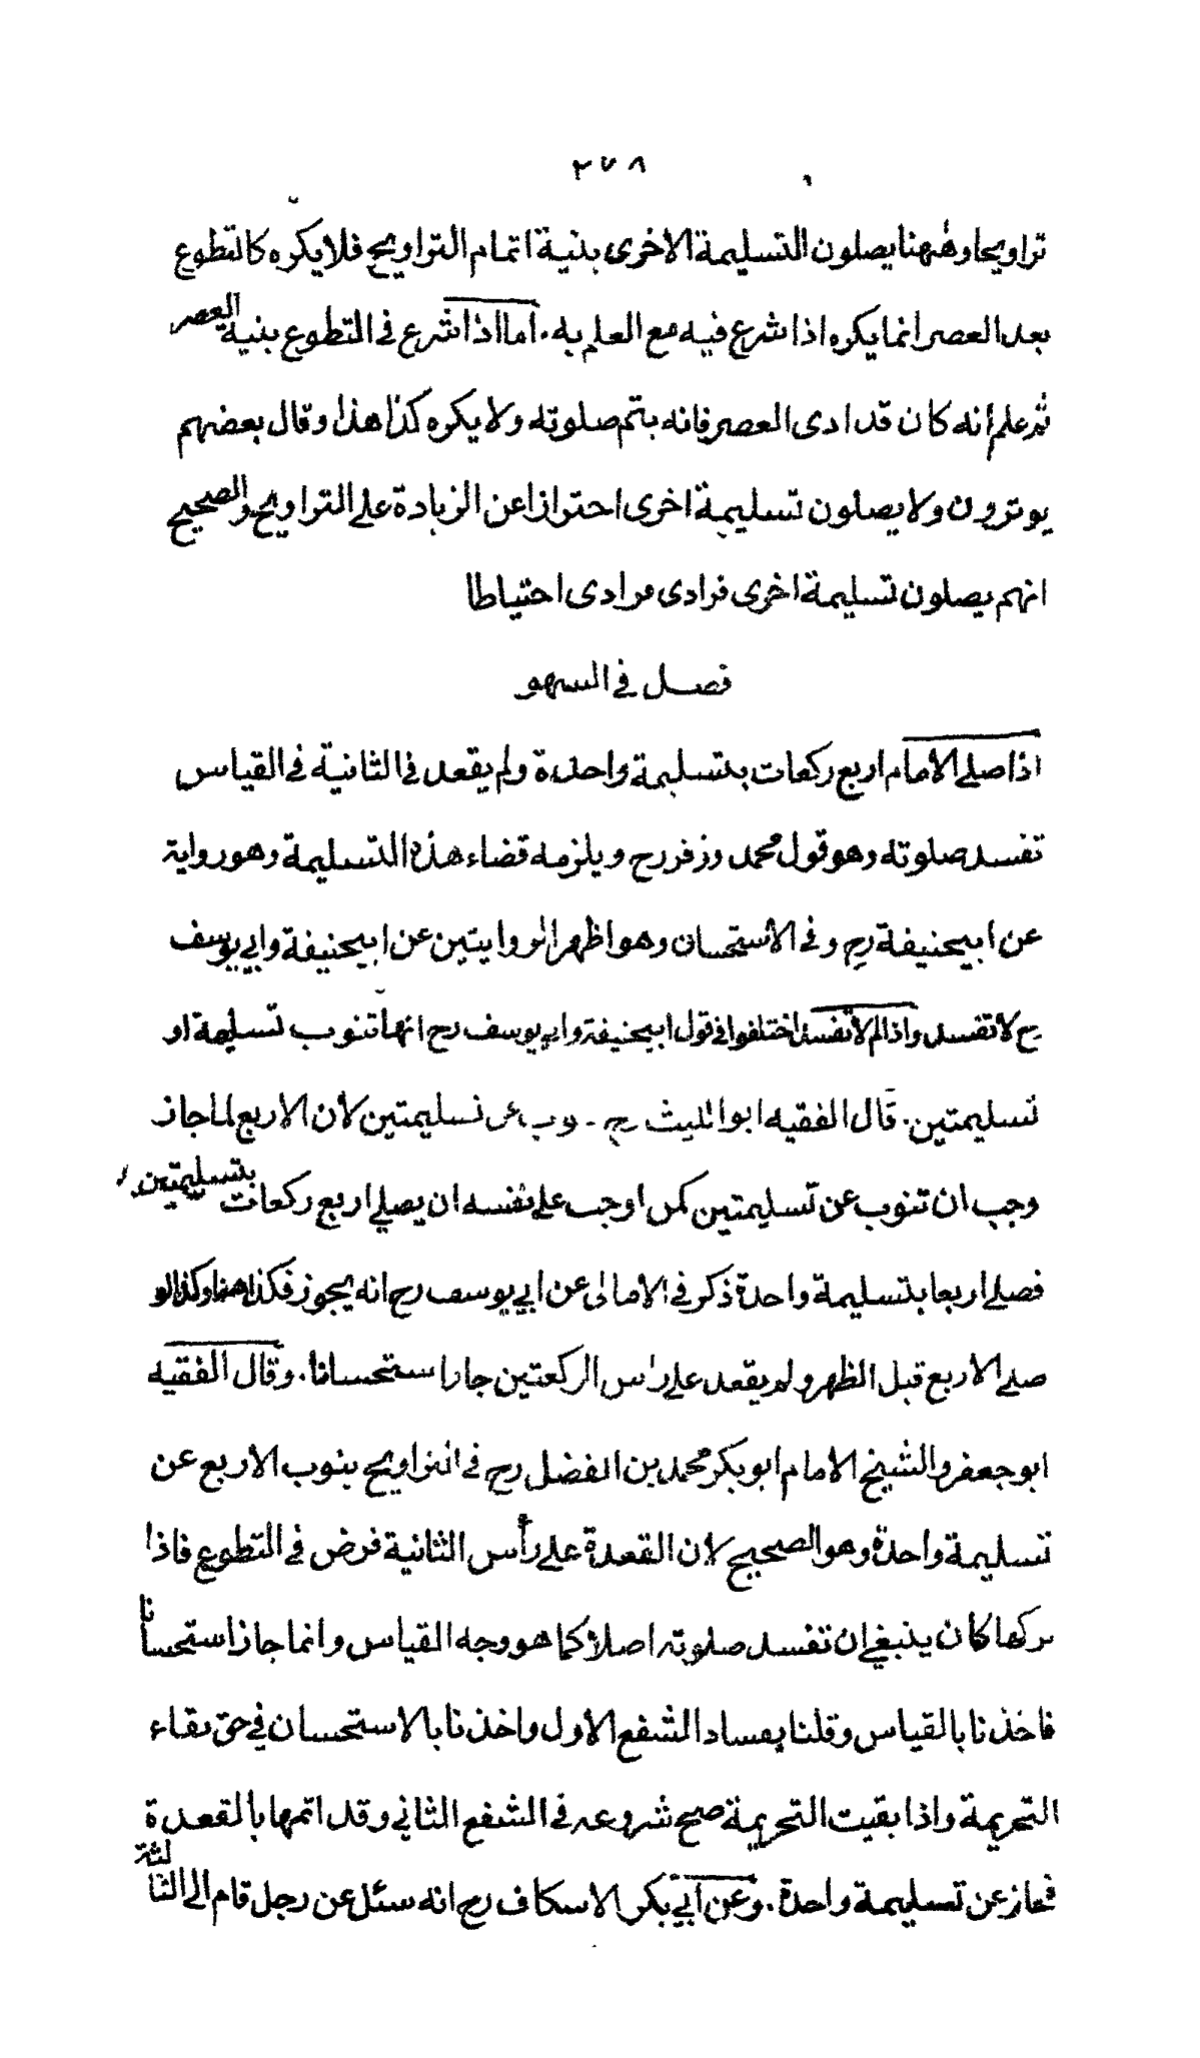 ٢٧٨
تراويحا وههنا يصلون التسليمة الاخرى بنية اتمام التراويح فلا يكره كالتطوع
بعد العصر انما يكره اذا شرع فيه مع العلم به. اما اذا شرع في التطوع بنية العصر
ثم علم أنه كان قد ادى العصر فانه يتم صلوته ولا يكره كذا هذا وقال بعضهم
يوترون ولا يصلون تسليمة اخرى احترازا عن الزيادة على التراويح والصحيح
انهم يصلون تسليمة اخرى فرادى فرادى احتياطا
فصل في السهو
اذا صلى الامام اربع ركعات بتسليمة واحدة ولم يقعد في الثانية في القياس
تفسد صلوته وهو قول محمد وزفر رح ويلزمه قضاء هذه التسليمة وهو رواية
عن ابيحنيفة رح وفي الاستحسان وهو اظهر الروايتين عن ابيحنيفة وابي يوسف
رح لا تفسد واذا لم لا تفسد اختلفوا في قول ابيحنيفة وابي يوسف رح انها تنوب تسليمة او
تسليمتين. قال الفقيه ابو الليث رح عن تسليمتين لان الاربع لما جاز
وجب ان تنوب عن تسليمتين كمن اوجب على نفسه ان يصلي اربع ركعات بتسليمتين
فصلى اربعا بتسليمة واحدة ذكر في الامالى عن ابي يوسف رح انه يجوز فكذا هنا وكذا لو
صلى الاربع قبل الظهر ولم يقعد على رأس الركعتين جاز استحسانا. وقال الفقيه
ابو جعفر والشيخ الامام ابو بكر محمد بن الفضل رح في التراويح ينوب الاربع عن
تسليمة واحدة وهو الصحيح لان القعدة على رأس الثانية فرض في التطوع فاذا
تركها كان ينبغي ان تفسد صلوته اصلا كما هو وجه القياس وانما جاز استحسانا
فاخذنا بالقياس وقلنا بفساد الشفع الاول واخذنا بالاستحسان في حق بقاء
التحريمة واذا بقيت التحريمة صح شروعه في الشفع الثاني وقد اتمها بالقعدة
فجاز عن تسليمة واحدة. وعن ابي بكر الاسكاف رح انه سئل عن رجل قام الى الثالثة